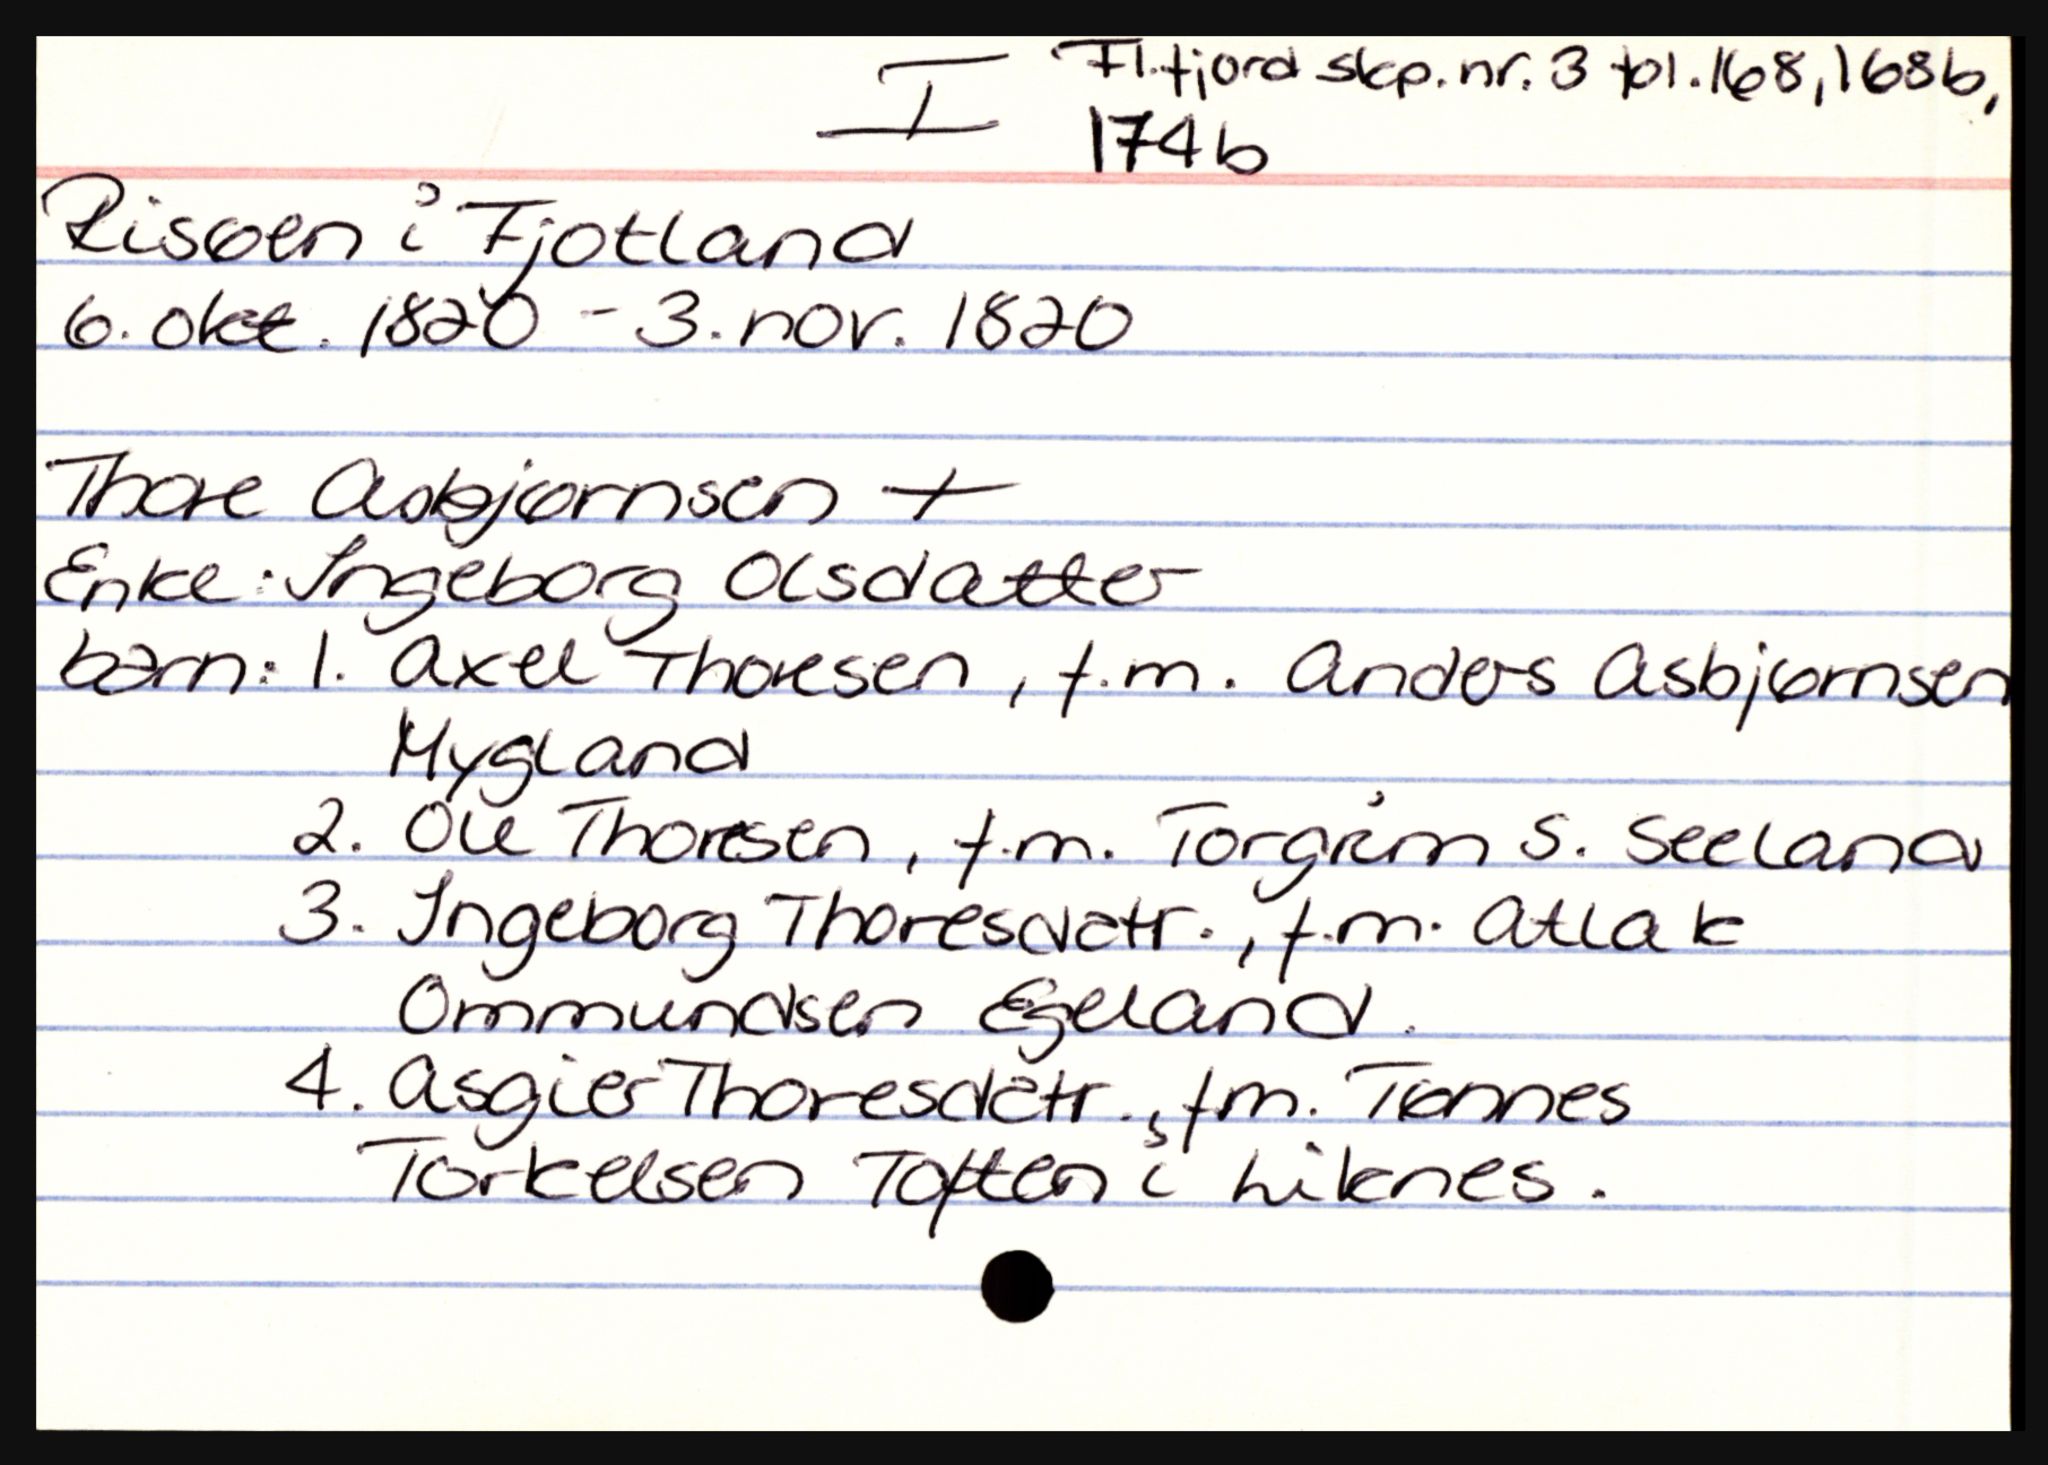 I Fl.fjord skp. nr. 3 fol. 168, 168b,
174b
Risøen i Fjotland
6. okt. 1820 - 3. nov. 1820
Thore Asbjørnsen +
Enke: Ingeborg Olsdatter
barn: 1. Axel Thoresen, f.m. Anders Asbjørnsen
Mygland
2. Ole Thoresen, f.m. Torgrim S. Seeland
3. Ingeborg Thoresdatr., f.m. Atlak
Ommundsen Egeland.
4. Asgier Thoresdatr., fm. Tønnes
Torkelsen Toften i Liknes.